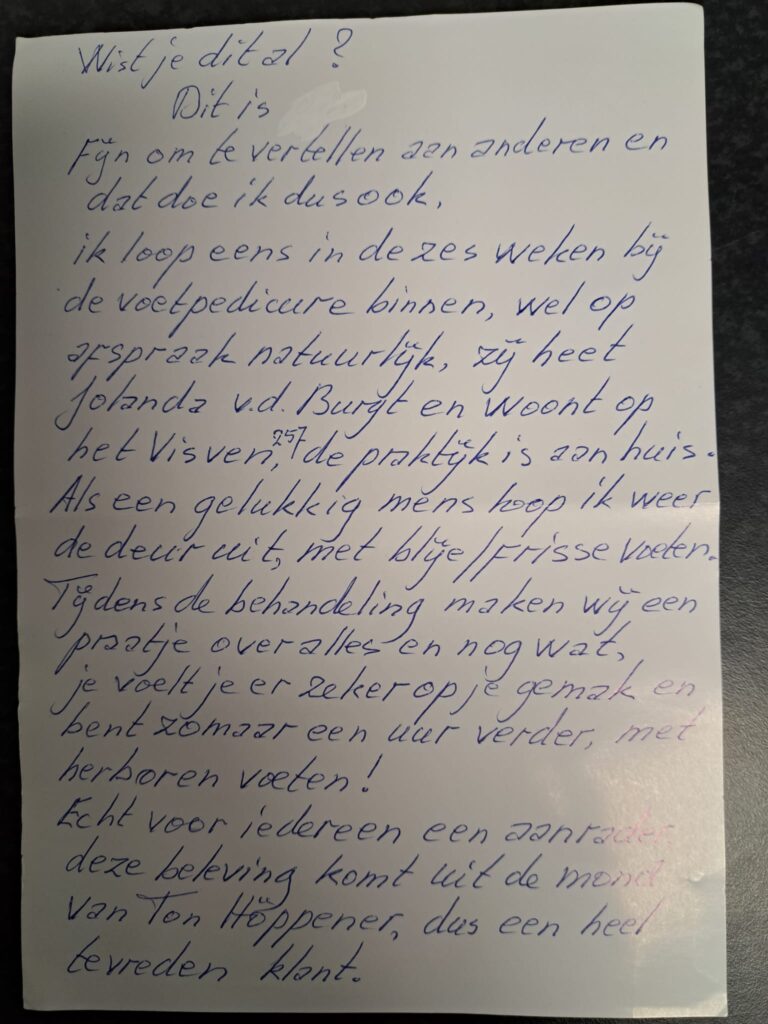 Wist je dit al ?
Dit is
Fijn om te vertellen aan anderen en
dat doe ik dus ook,
ik loop eens in de zes weken bij
de voetpedicure binnen, wel op
afspraak natuurlijk, zij heet
Jolanda v.d. Burgt en woont op
het Visven, 257 de praktijk is aan huis.
Als een gelukkig mens loop ik weer
de deur uit, met blije/frisse voeten.
Tijdens de behandeling maken wij een
praatje over alles en nog wat,
je voelt je er zeker op je gemak en
bent zomaar een uur verder, met
herboren voeten!
Echt voor iedereen een aanrader
deze beleving komt uit de mond
van Ton Höppener, dus een heel
tevreden klant.